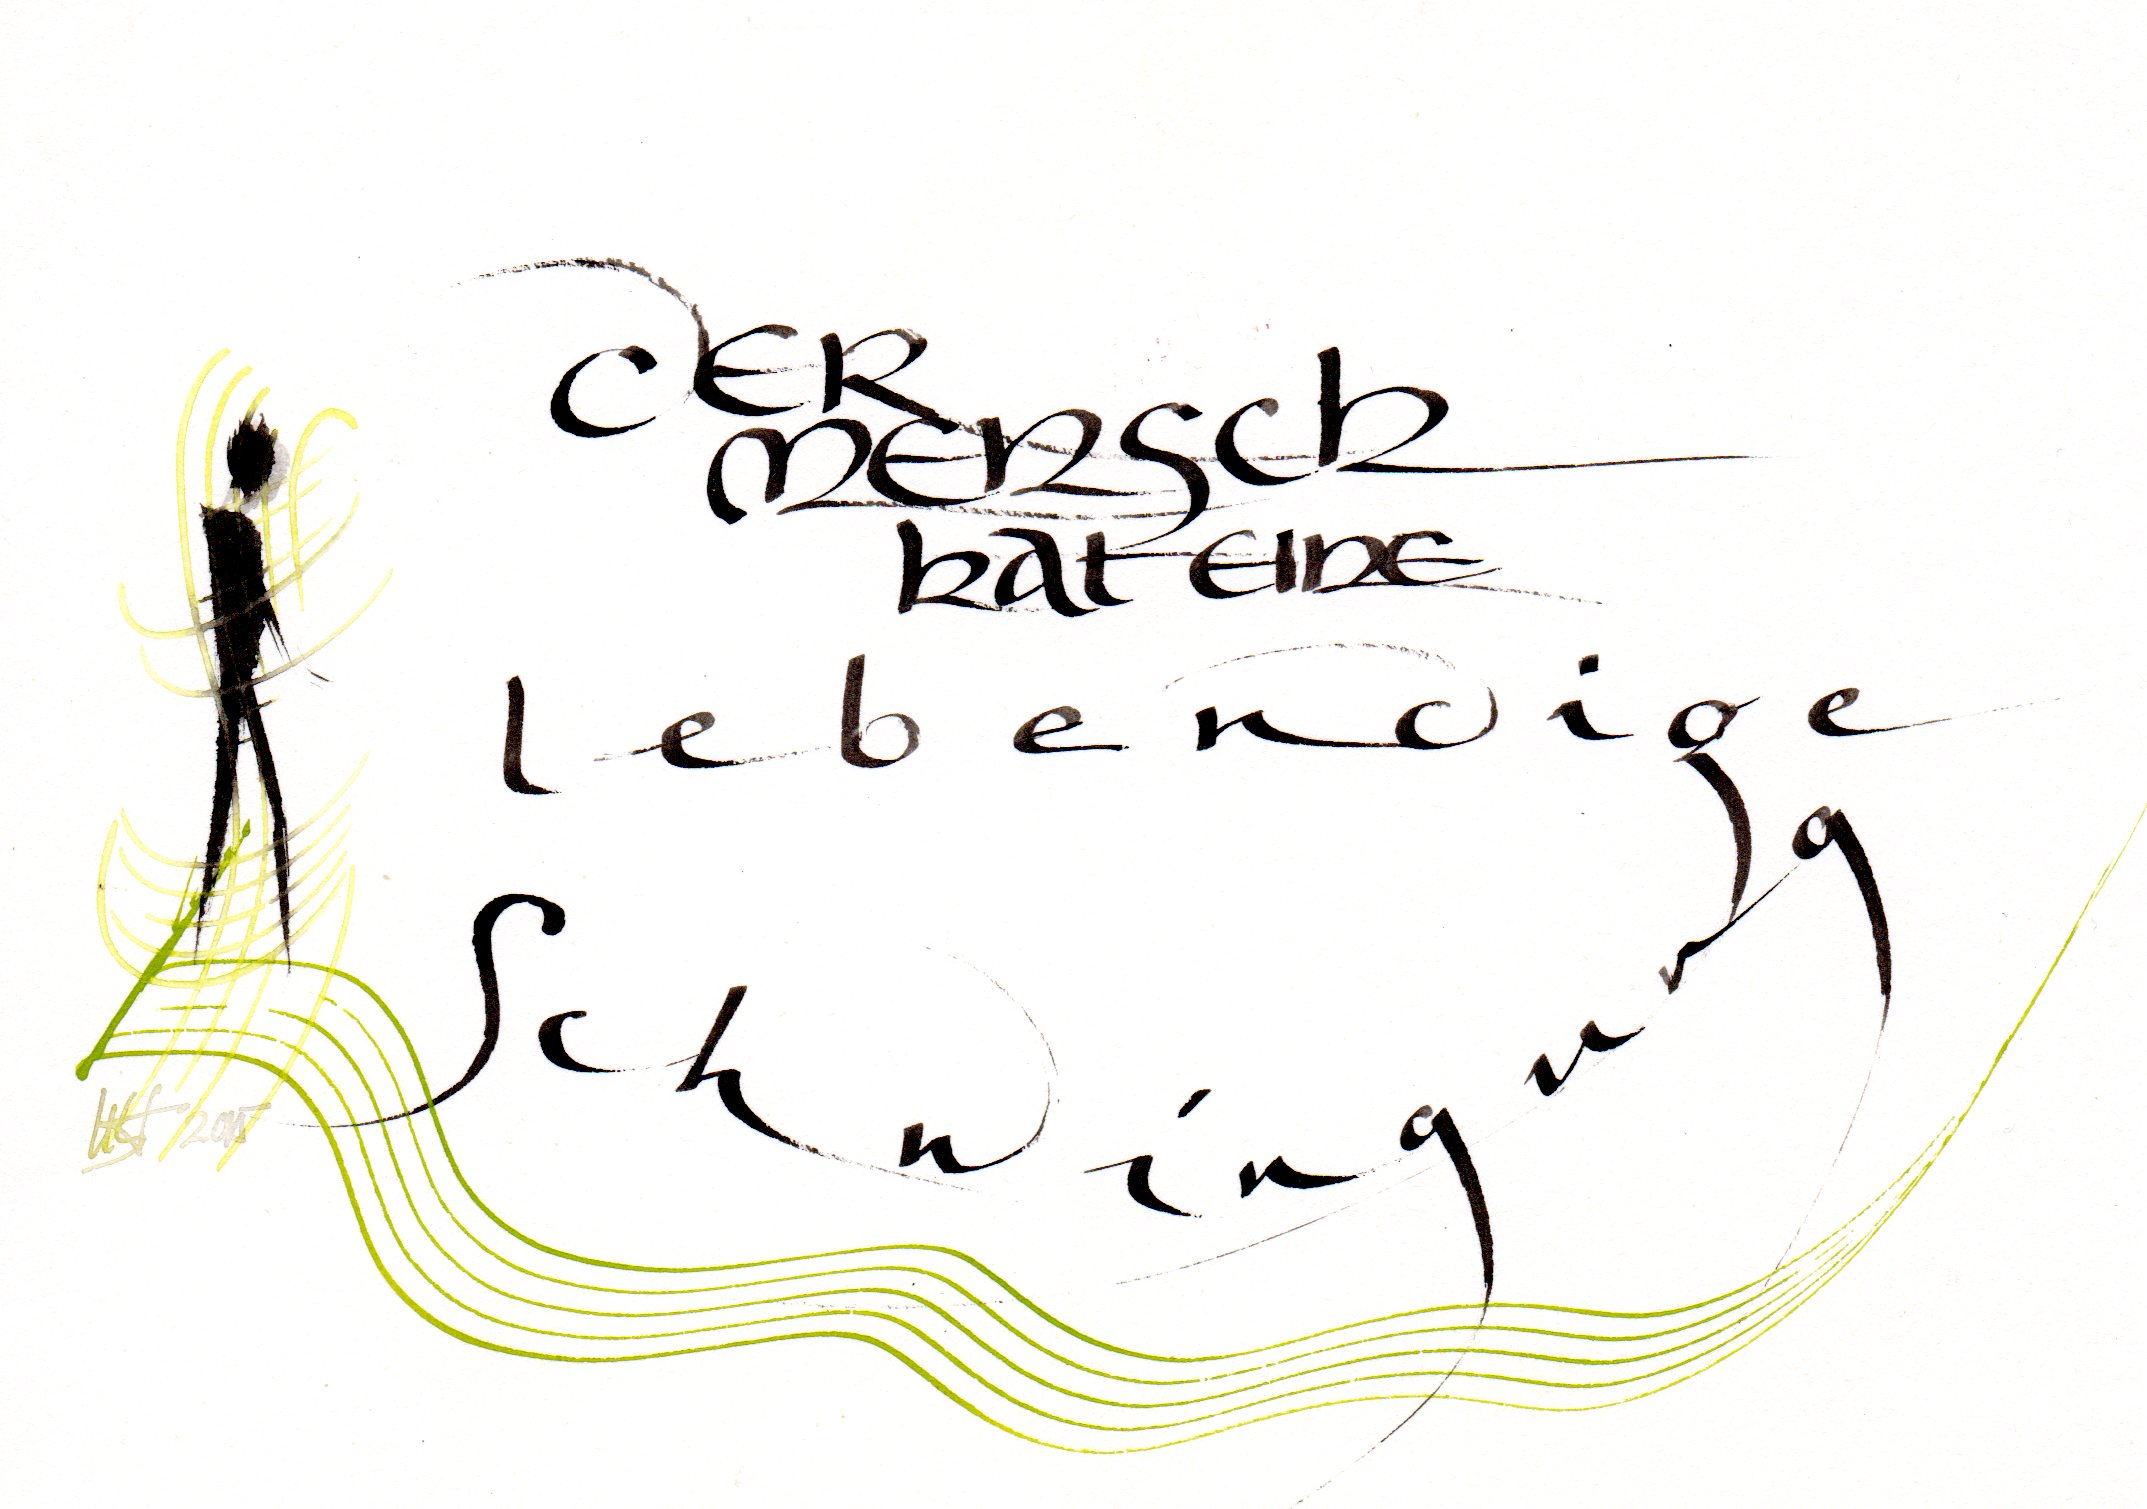 DER
MENSCH
HAT EINE
lebendige
Schwingung